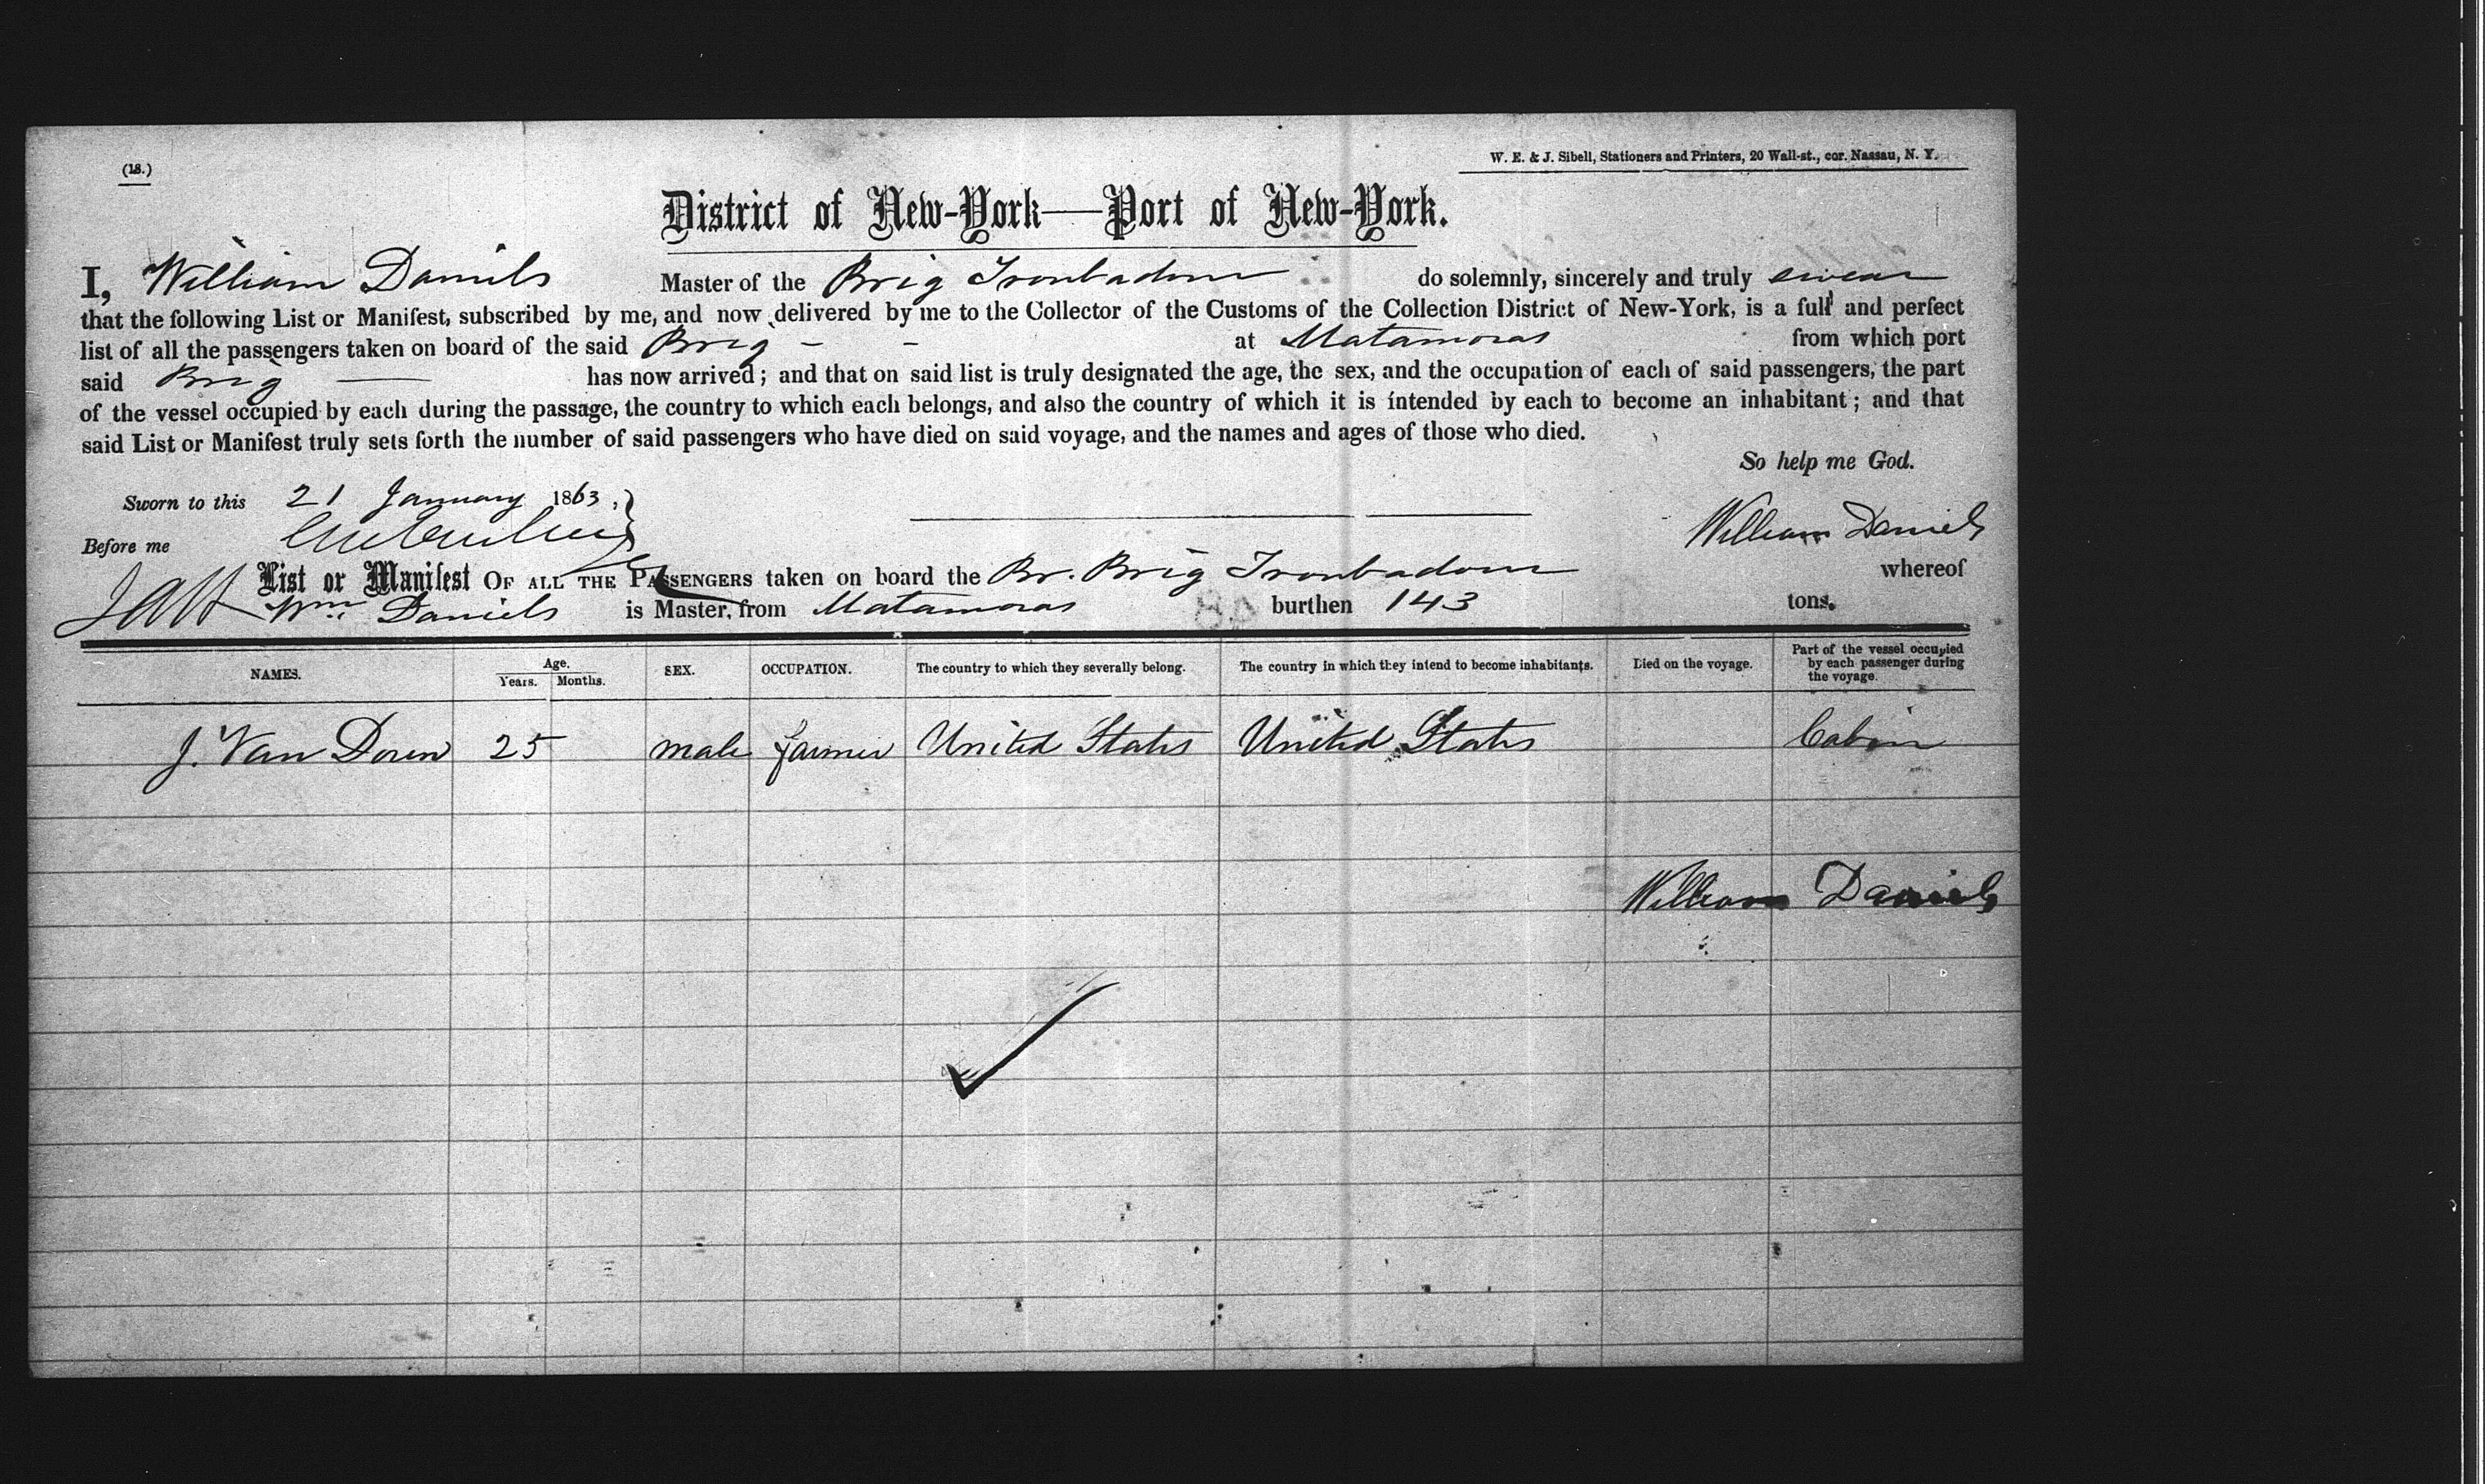 (18.)
W. E. & J. Sibell, Stationers and Printers, 20 Wall-st., cor. Nassau, N. Y.
District of New-York—Port of New-York.
I, William Daniels Master of the Brig Troubadour do solemnly, sincerely and truly swear
that the following List or Manifest, subscribed by me, and now delivered by me to the Collector of the Customs of the Collection District of New-York, is a full and perfect
list of all the passengers taken on board of the said Brig - - at Matamoras from which port
said Brig — has now arrived; and that on said list is truly designated the age, the sex, and the occupation of each of said passengers, the part
of the vessel occupied by each during the passage, the country to which each belongs, and also the country of which it is intended by each to become an inhabitant; and that
said List or Manifest truly sets forth the number of said passengers who have died on said voyage, and the names and ages of those who died.
So help me God.
Sworn to this 21 January 1863,
William Daniels
Before me
List or Manifest OF ALL THE PASSENGERS taken on board the Br. Brig Troubadour whereof
Wm Daniels is Master, from Matamoras burthen 143 tons.
NAMES. Age. Years. Months. SEX. OCCUPATION. The country to which they severally belong. The country in which they intend to become inhabitants. Died on the voyage. Part of the vessel occupied by each passenger during the voyage.
J. Van Doren 25 male farmer United States United States Cabin
William Daniels